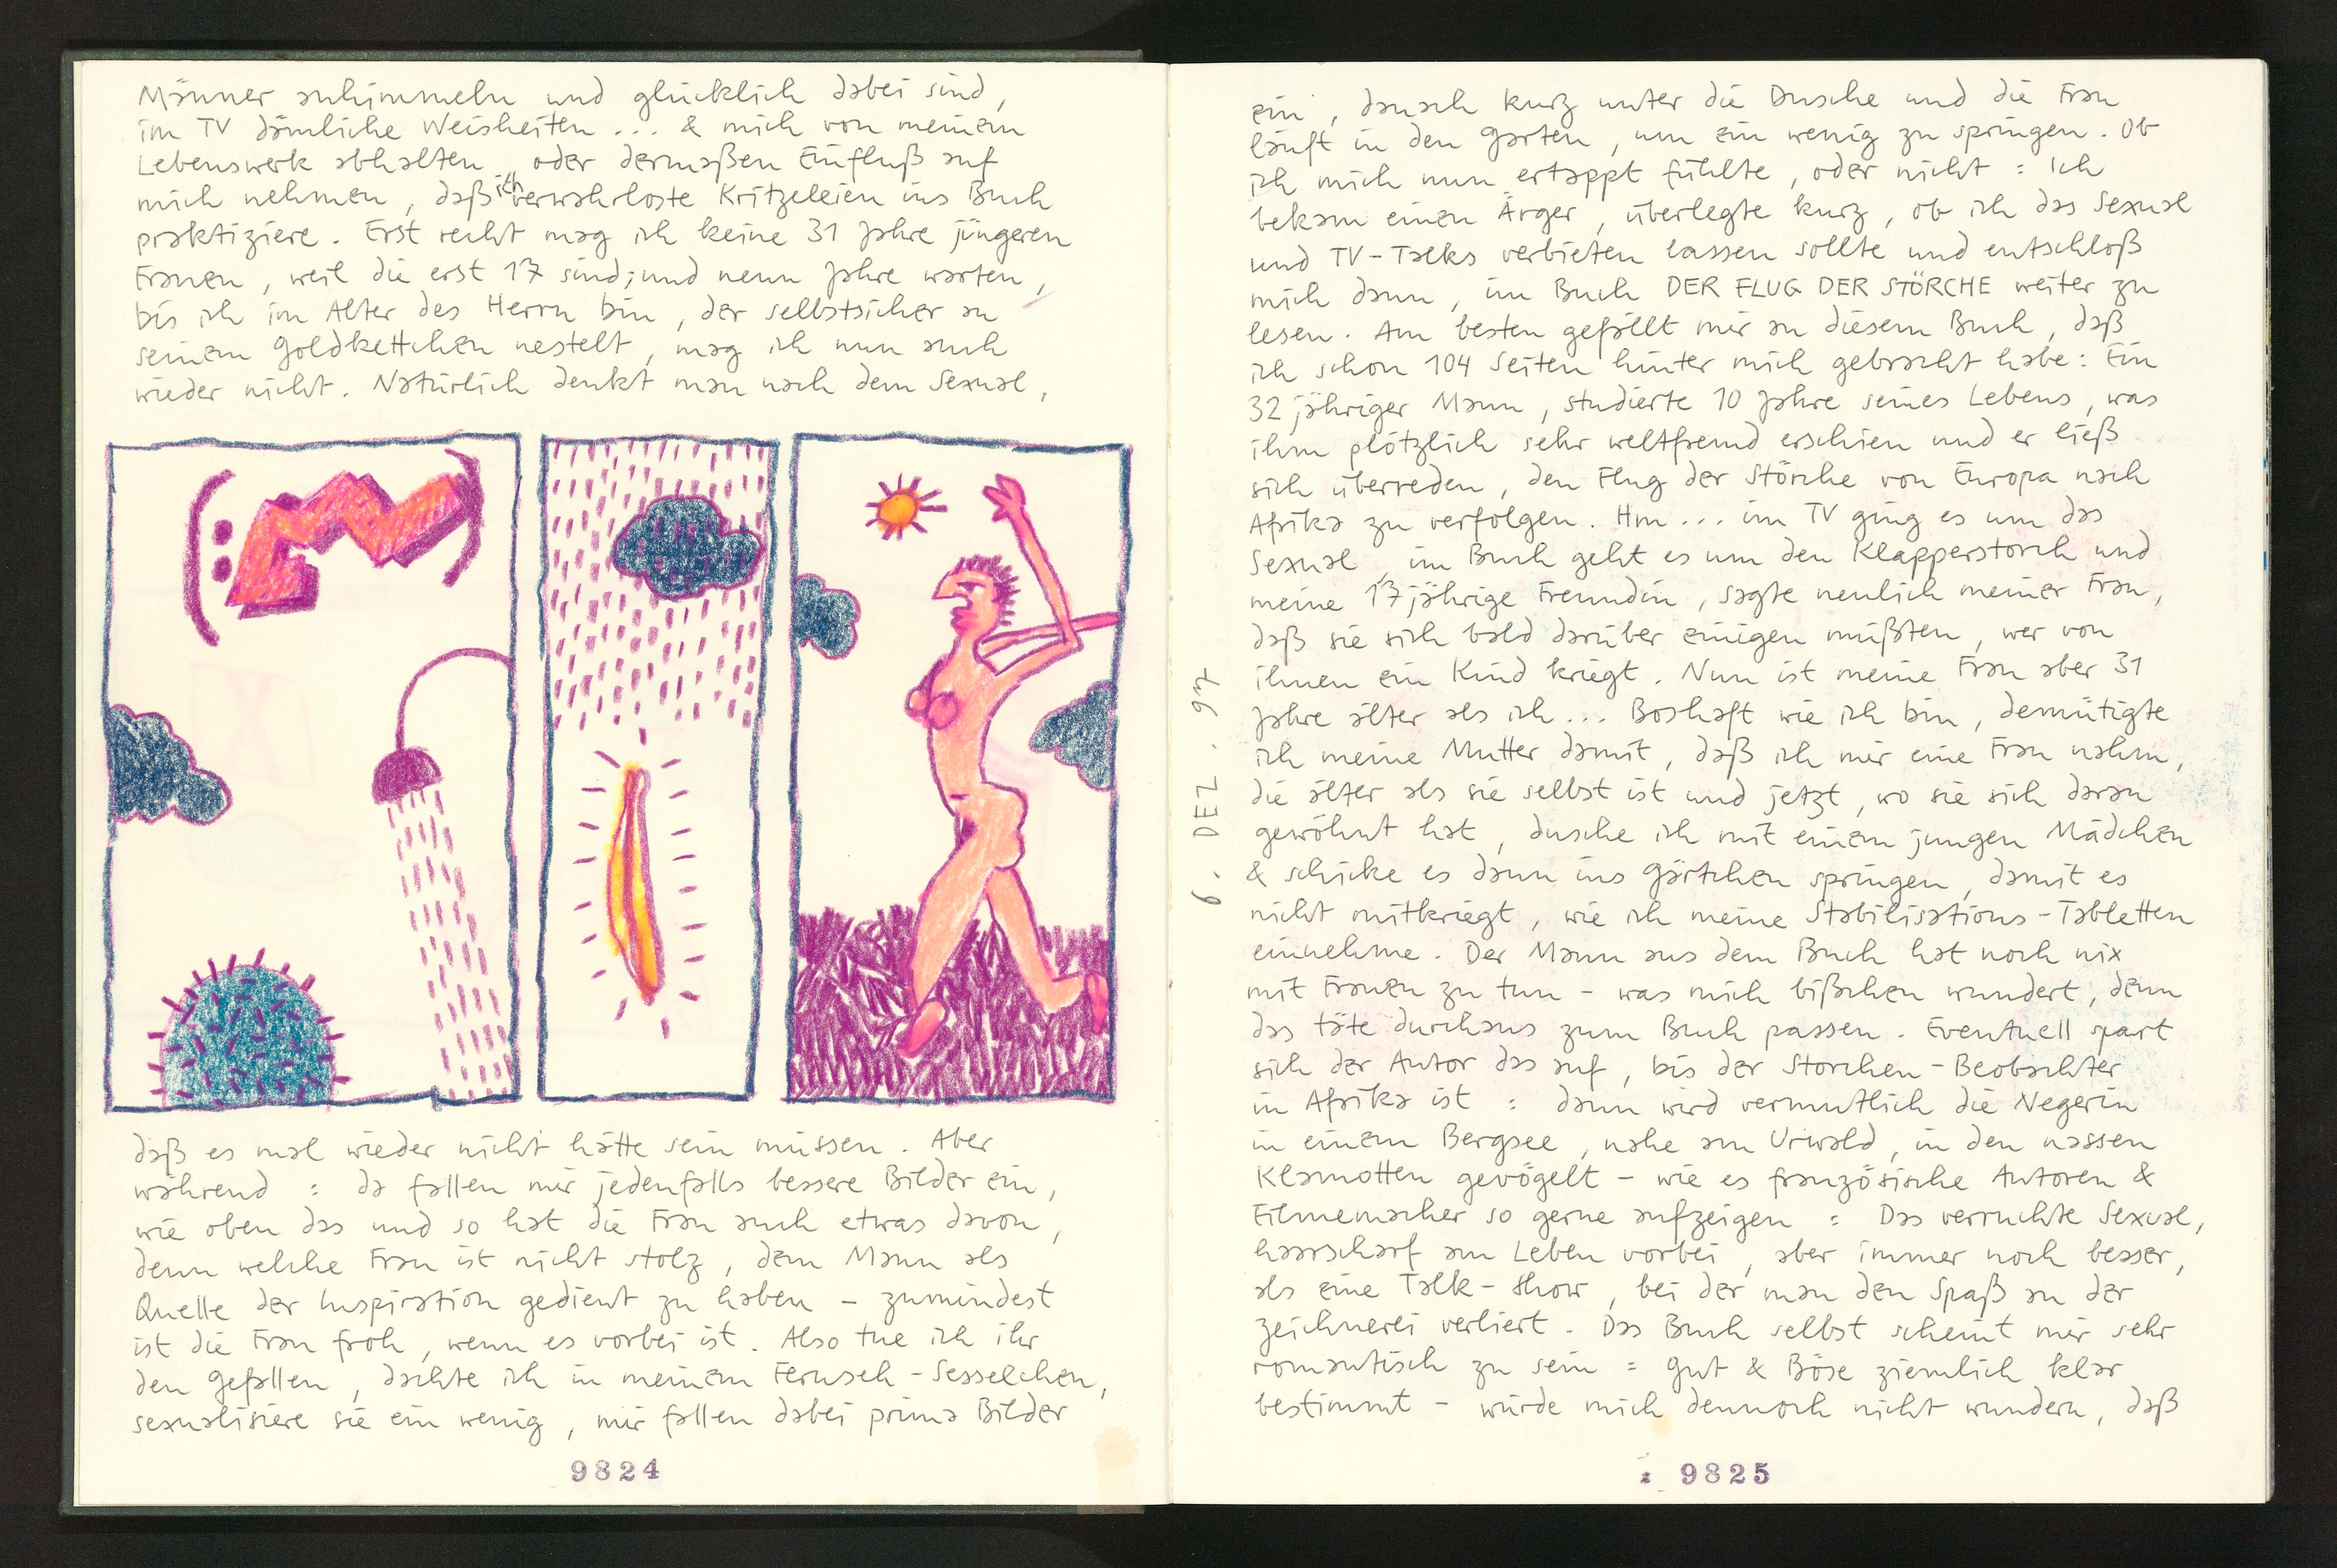 Männer anhimmeln und glücklich dabei sind,
im TV dämliche Weisheiten ... & mich von meinem
Lebenswerk abhalten, oder dermaßen Einfluß auf
mich nehmen, daß ich verwahrloste Kritzeleien ins Buch
praktiziere. Erst recht mag ich keine 31 Jahre jüngeren
Frauen, weil die erst 17 sind; und neun Jahre warten,
bis ich im Alter des Herrn bin, der selbstsicher an
seinem Goldkettchen nestelt, mag ich nun auch
wieder nicht. Natürlich denkt man nach dem Sexual,
daß es mal wieder nicht hätte sein müssen. Aber
während : da fallen mir jedenfalls bessere Bilder ein,
wie oben das und so hat die Frau auch etwas davon,
denn welche Frau ist nicht stolz, dem Mann als
Quelle der Inspiration gedient zu haben - zumindest
ist die Frau froh, wenn es vorbei ist. Also tue ich ihr
den Gefallen, dachte ich in meinem Fernseh-Sesselchen,
sexualisiere sie ein wenig, mir fallen dabei prima Bilder
9824
6. DEZ. 97
ein, danach kurz unter die Dusche und die Frau
läuft in den Garten, um ein wenig zu springen. Ob
ich mich nun ertappt fühlte, oder nicht : Ich
bekam einen Ärger, überlegte kurz, ob ich das Sexual
und TV-Talks verbieten lassen sollte und entschloß
mich dann, im Buch DER FLUG DER STÖRCHE weiter zu
lesen. Am besten gefällt mir an diesem Buch, daß
ich schon 104 Seiten hinter mich gebracht habe: Ein
32 jähriger Mann, studierte 10 Jahre seines Lebens, was
ihm plötzlich sehr weltfremd erschien und er ließ
sich überreden, den Flug der Störche von Europa nach
Afrika zu verfolgen. Hm... im TV ging es um das
Sexual, im Buch geht es um den Klapperstorch und
meine 17jährige Freundin, sagte neulich meiner Frau,
daß sie sich bald darüber einigen müßten, wer von
ihnen ein Kind kriegt. Nun ist meine Frau aber 31
Jahre älter als ich... Boshaft wie ich bin, demütigte
ich meine Mutter damit, daß ich mir eine Frau nahm,
die älter als sie selbst ist und jetzt, wo sie sich daran
gewöhnt hat, dusche ich mit einem jungen Mädchen
& schicke es dann ins Gärtchen springen, damit es
nicht mitkriegt, wie ich meine Stabilisations-Tabletten
einnehme. Der Mann aus dem Buch hat noch nix
mit Frauen zu tun - was mich bißchen wundert, denn
das täte durchaus zum Buch passen. Eventuell spart
sich der Autor das auf, bis der Storchen-Beobachter
in Afrika ist : dann wird vermutlich die Negerin
in einem Bergsee, nahe am Urwald, in den nassen
Klamotten gevögelt - wie es französische Autoren &
Filmemacher so gerne aufzeigen : Das verruchte Sexual,
haarscharf am Leben vorbei, aber immer noch besser,
als eine Talk-Show, bei der man den Spaß an der
Zeichnerei verliert. Das Buch selbst scheint mir sehr
romantisch zu sein : Gut & Böse ziemlich klar
bestimmt - würde mich dennoch nicht wundern, daß
9825